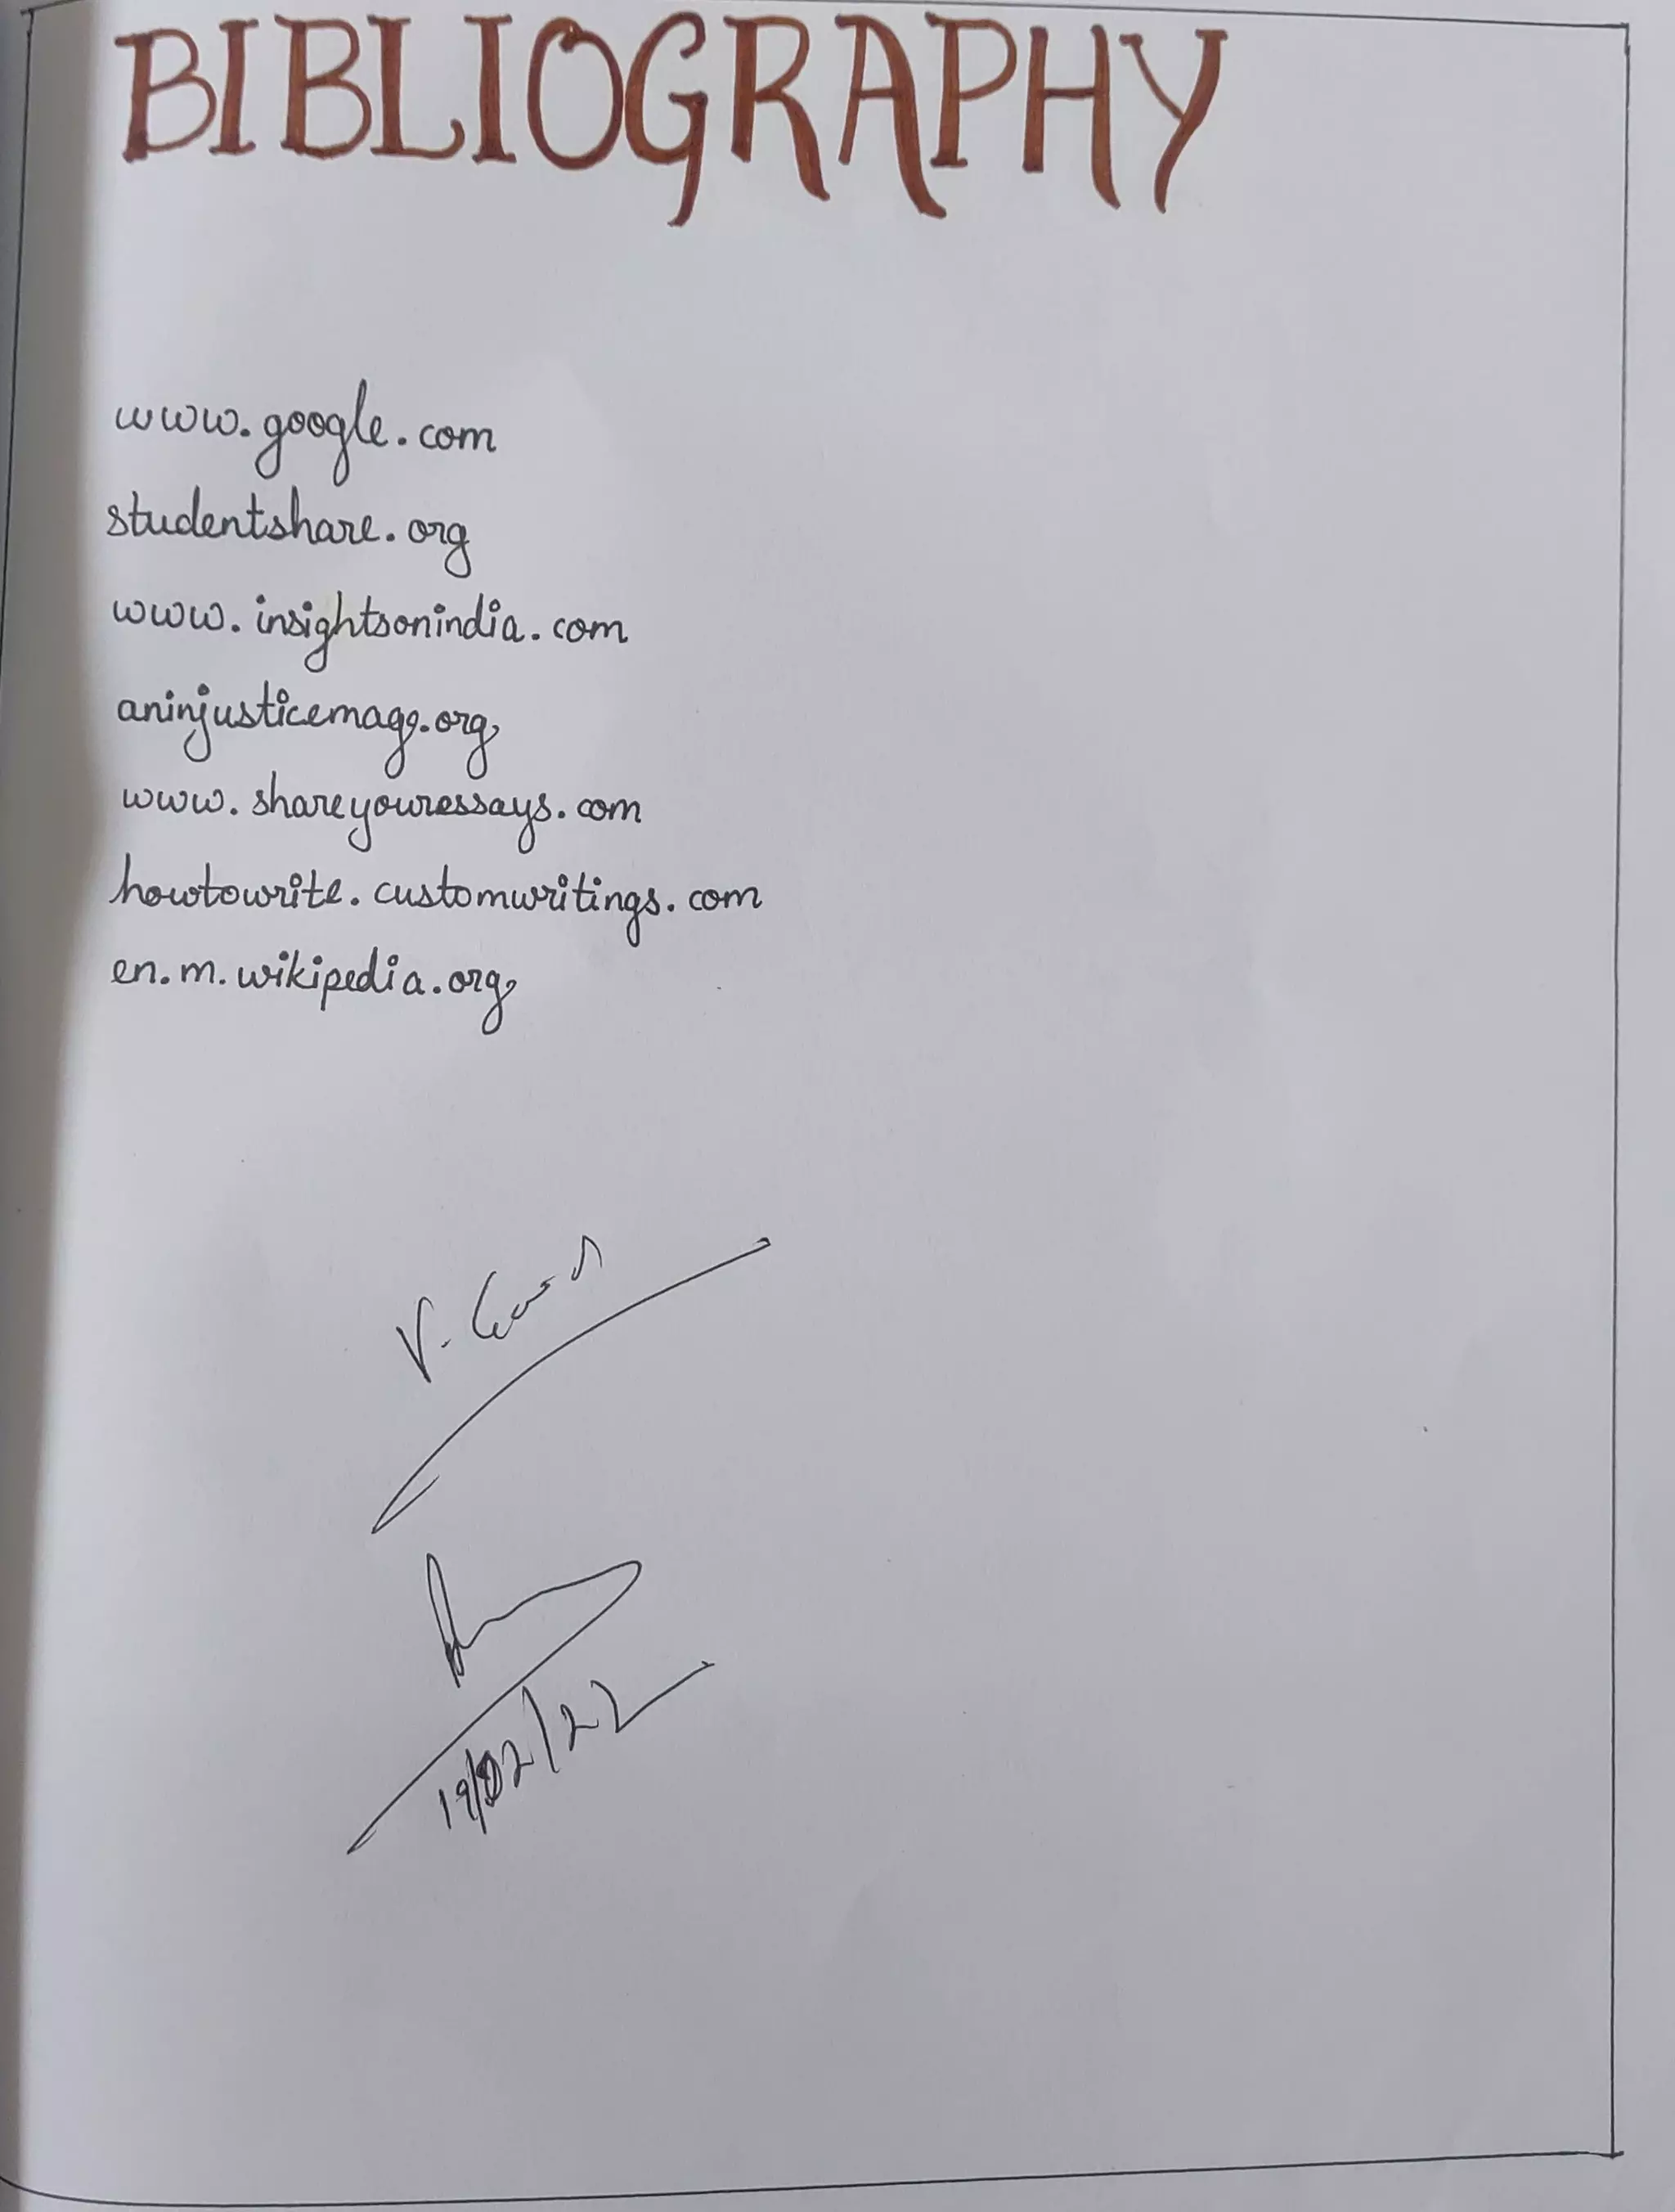 BIBLIOGRAPHY
www.google.com
studentshare.org
www.insightsonindia.com
aninjusticemag.org
www.shareyouressays.com
howtowrite.customwritings.com
en.m.wikipedia.org
19/02/22